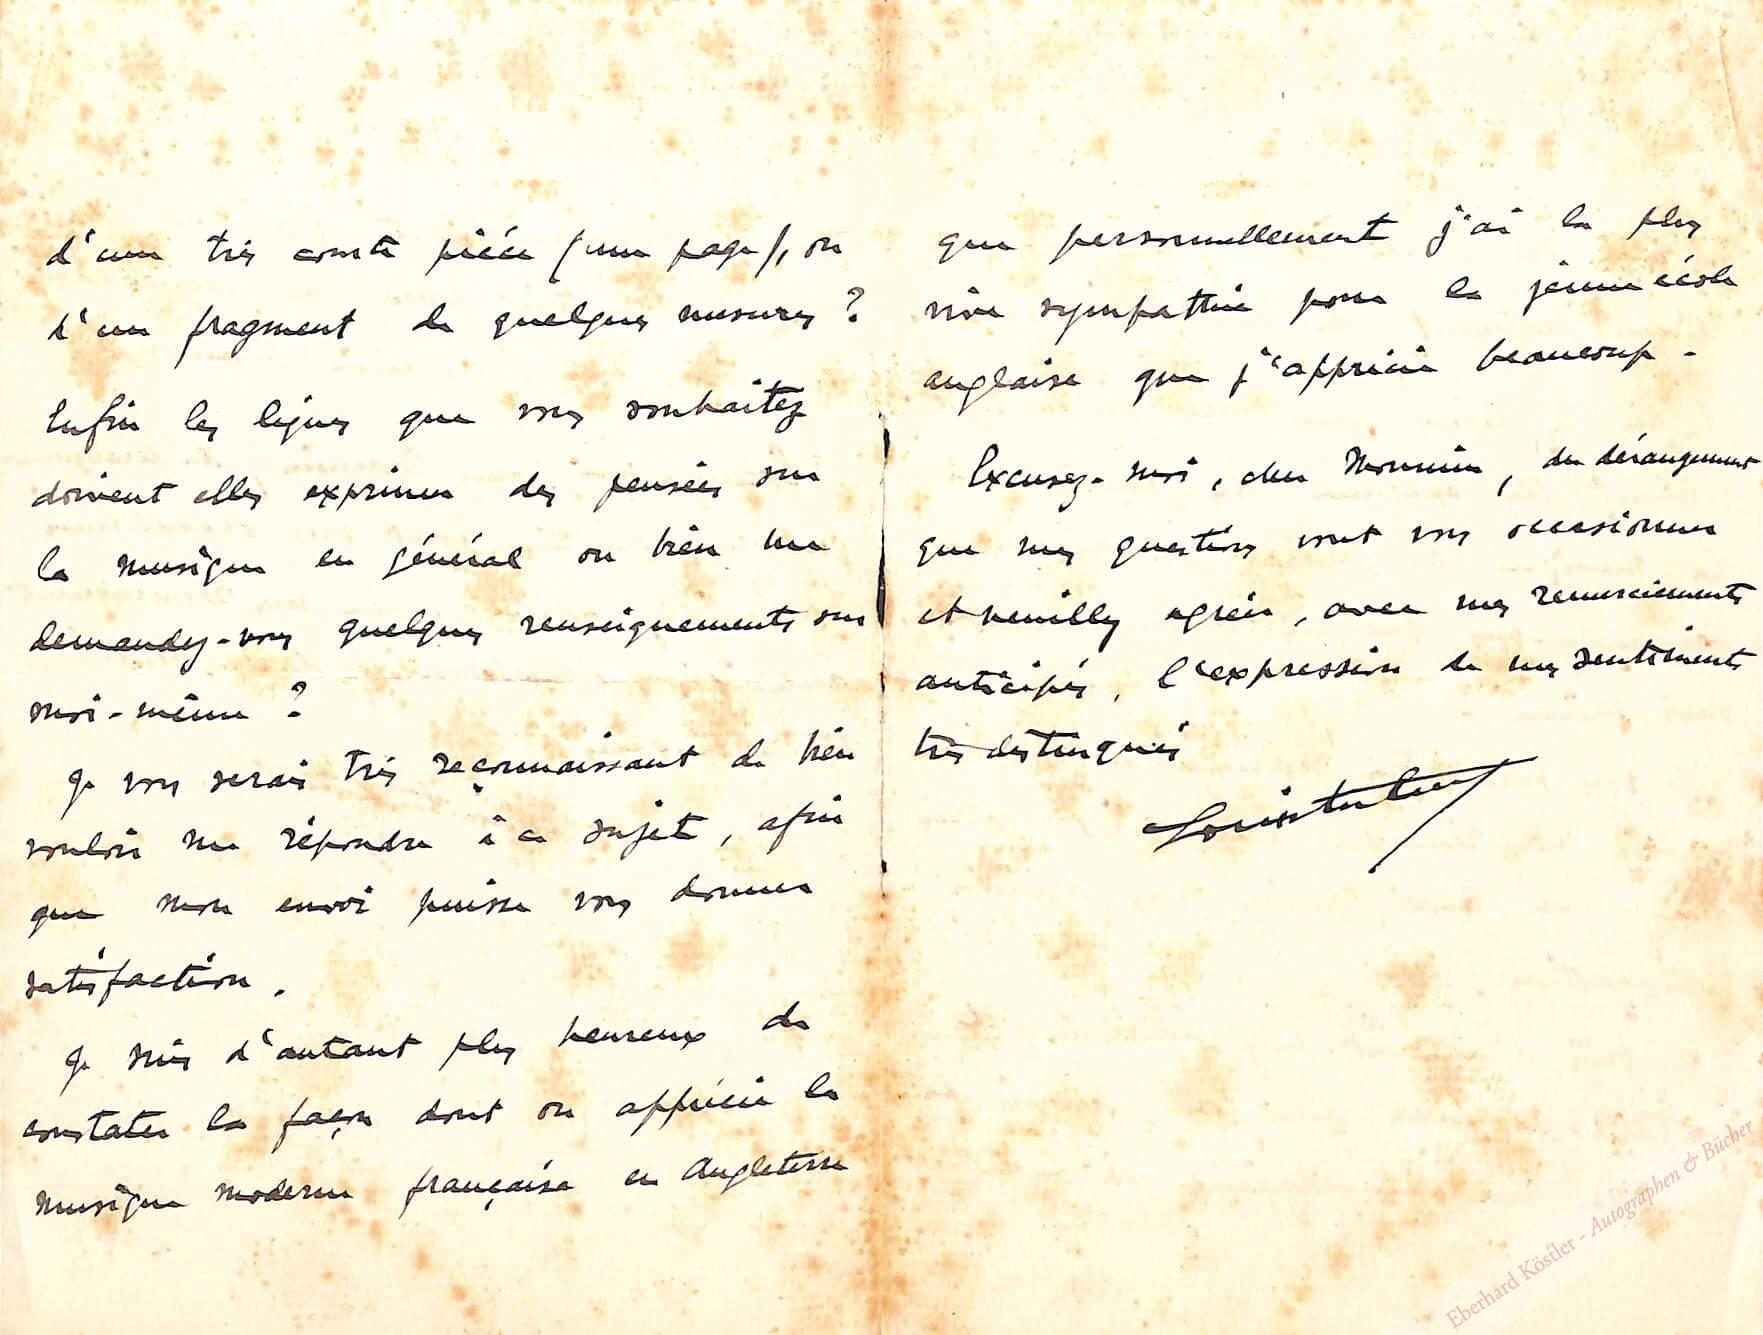 d'une très courte pièce (une page), ou
d'un fragment de quelques mesures ?
Enfin les lignes que vous souhaitez
doivent elles exprimer des pensées sur
la musique en général ou bien me
demandez-vous quelques renseignements sur
moi-même ?
Je vous serais très reconnaissant de bien
vouloir me répondre à ce sujet, afin
que mon envoi puisse vous donner
satisfaction.
Je suis d'autant plus heureux de
constater la façon dont on apprécie la
musique moderne française en Angleterre
que personnellement j'ai la plus
vive sympathie pour la jeune école
anglaise que j'apprécie beaucoup -
Excusez-moi, cher Monsieur, du dérangement
que mes questions vont vous occasionner
et veuillez agréer, avec mes remerciements
anticipés, l'expression de mes sentiments
très distingués
Louis Aubert
Eberhard Köstler - Autographen & Bücher